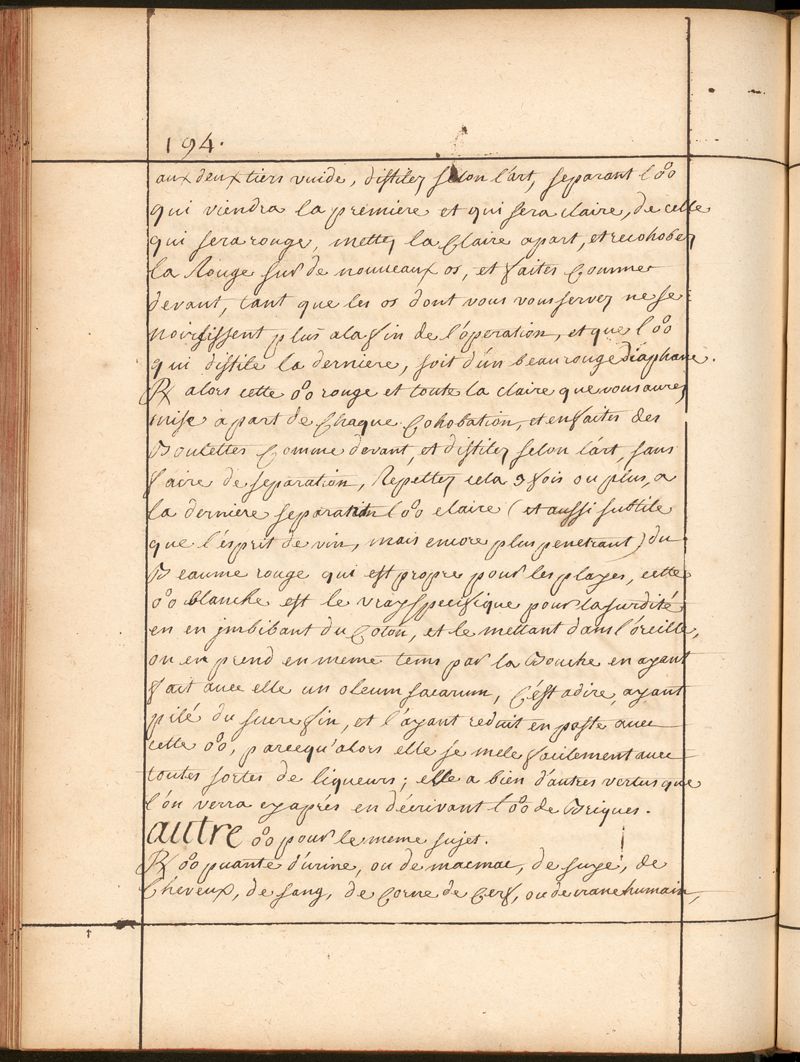 194.
aux deux tiers vuide, distilez selon l'art, separant l'o°o
qui viendra la premiere et qui sera claire, de celle
qui sera rouge, mettez la Claire apart, et recohobez
la Rouge sur de nouveaux os, et faites Comme
devant, tant que les os dont vous vous servez ne se
noircissent plus a la fin de l'operation, et que l'o°o
qui distile la derniere, soit d'un beau rouge diaphane.
℞ alors cette o°o rouge et toute la claire que vous aurez
mise apart de Chaque Cohobation, et en faites des
Boulettes Comme devant, et distilez selon l'art, sans
faire de separation, Repettez cela 3 fois ou plus, a
la derniere separation l'o°o claire (et aussi subtile
que l'esprit de vin, mais encore plus penetrant) du
Beaume rouge qui est propre pour les playes, cette
o°o blanche est le vray specifique pour la surdité
en en jmbibant du Coton, et le mettant dans l'oreille,
on en prend en meme tems par la Bouche en ayant
fait avec elle un oleum sacarum, C'est adire, ayant
pilé du sucre fin, et l'ayant reduit en paste avec
cette o°o, parcequ'alors elle se mele facilement avec
toutes sortes de liqueurs; elle a bien d'autres vertus que
l'on verra cy aprés en décrivant l'o°o de Briques.
autre o°o pour le meme sujet.
℞ o°o puante d'urine, ou de macmac, de suye, de
Cheveux, de sang, de Corne de Cerf, ou de crane humain,